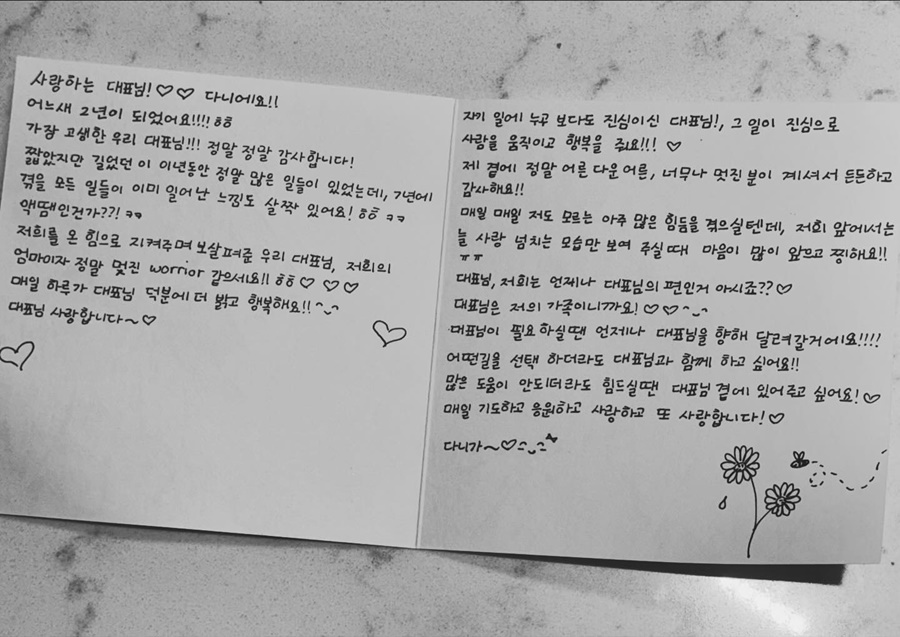 사랑하는 대표님!♡♡ 다니에요!!
어느새 2년이 되었어요!!!! ㅎㅎ
가장 고생한 우리 대표님!!! 정말 정말 감사합니다!
짧았지만 길었던 이 이년동안 정말 많은 일들이 있었는데, 7년에
겪을 모든 일들이 이미 일어난 느낌도 살짝 있어요! ㅎㅎ ㅋㅋ
액땜인건가??! ㅋㅋ
저희를 온 힘으로 지켜주며 보살펴준 우리 대표님, 저희의
엄마이자 정말 멋진 worrior 같으세요!! ㅎㅎ ♡ ♡ ♡
매일 하루가 대표님 덕분에 더 밝고 행복해요!! ^_^
대표님 사랑합니다~♡
자기 일에 누구 보다도 진심이신 대표님!, 그 일이 진심으로
사람을 움직이고 행복을 줘요!!! ♡
제 곁에 정말 어른 다운 어른, 너무나 멋진 분이 계셔서 든든하고
감사해요!!
매일 매일 저도 모르는 아주 많은 힘듦을 겪으실텐데, 저희 앞에서는
늘 사랑 넘치는 모습만 보여 주실때 마음이 많이 앞으고 찡해요!!
ㅠㅠ
대표님, 저희는 언제나 대표님의 편인거 아시죠?? ♡
대표님은 저의 가족이니까요! ♡♡ ^_^
대표님이 필요하실땐 언제나 대표님을 향해 달려갈거에요!!!!
어떤길을 선택 하더라도 대표님과 함께 하고 싶어요!!
많은 도움이 안되더라도 힘드실땐 대표님 곁에 있어주고 싶어요!♡
매일 기도하고 응원하고 사랑하고 또 사랑합니다!♡
다니가~♡^_^